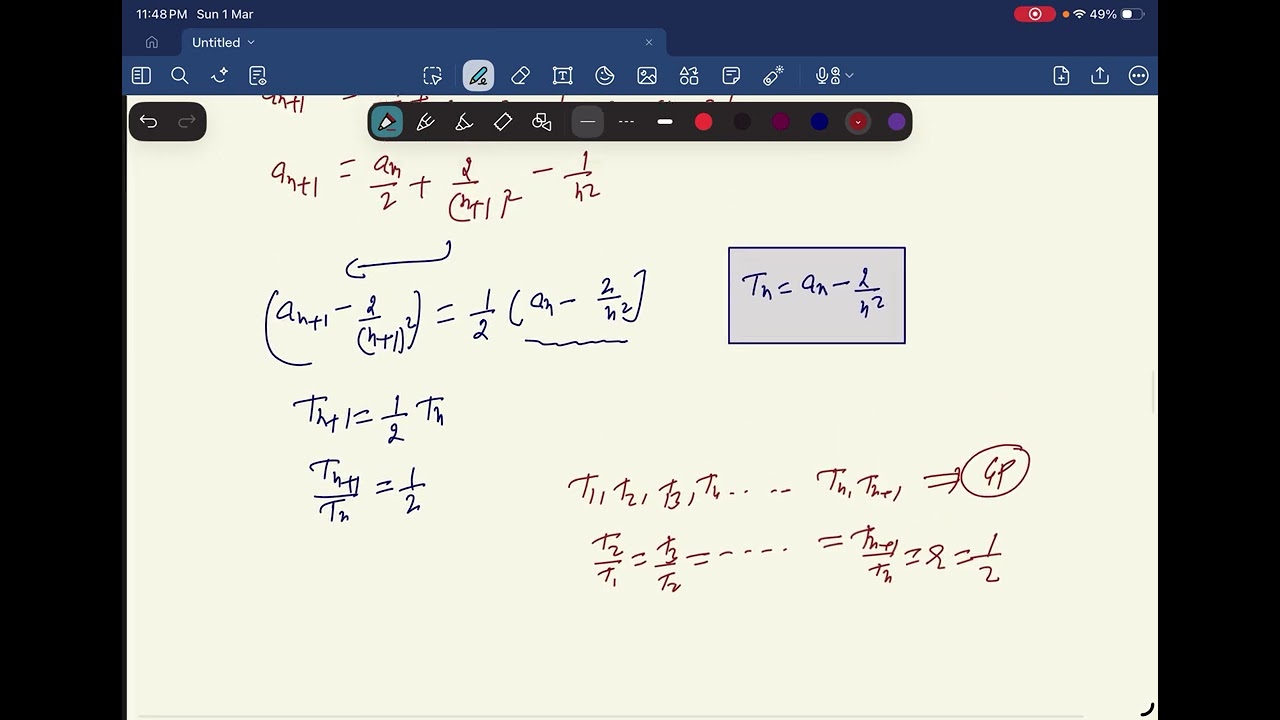 11:48 PM Sun 1 Mar 49%
Untitled
aₙ₊₁ =
aₙ₊₁ = aₙ/2 + 2/(n+1)² − 1/n²
(aₙ₊₁ − 2/(n+1)²) = 1/2 (aₙ − 2/n²]
Tₙ = aₙ − 2/n²
Tₙ₊₁ = 1/2 Tₙ
Tₙ₊₁/Tₙ = 1/2
T₁, T₂, T₃, T₄ ..... .. Tₙ, Tₙ₊₁ ⇒ GP
T₂/T₁ = T₃/T₂ = ----.. = Tₙ₊₁/Tₙ = r = 1/2